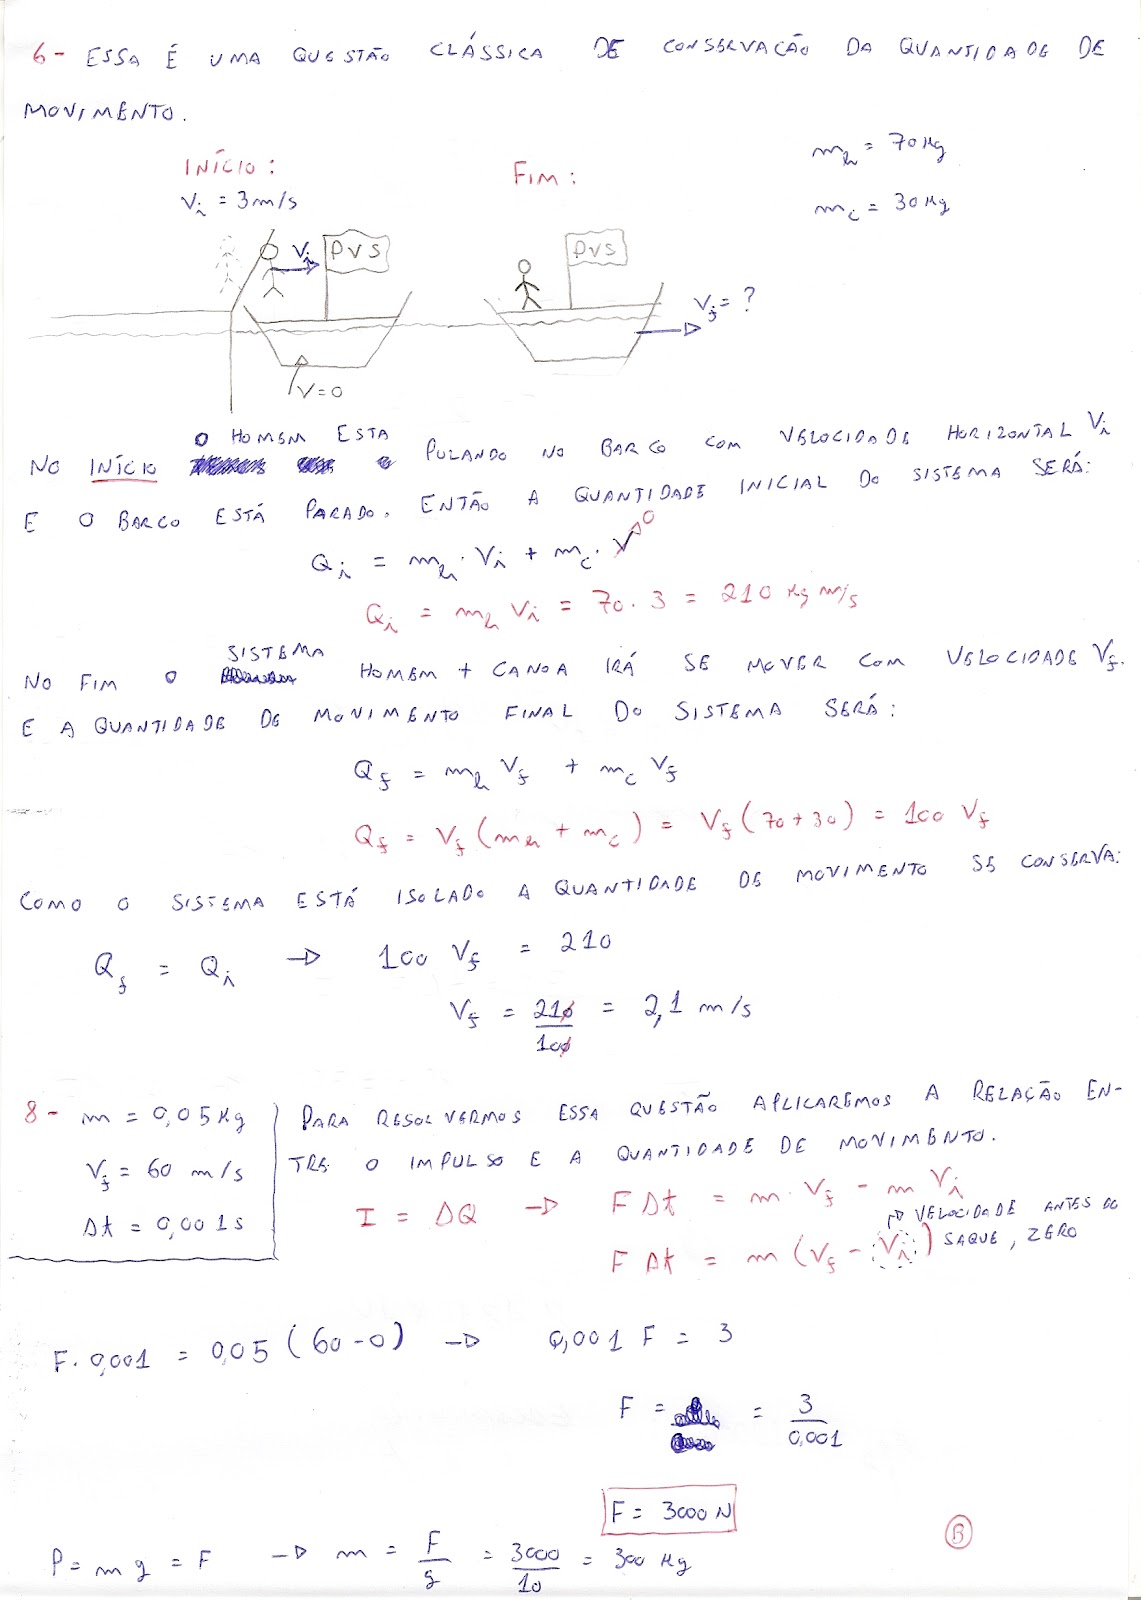 6- ESSA É UMA QUESTÃO CLÁSSICA DE CONSERVAÇÃO DA QUANTIDADE DE
MOVIMENTO.
INÍCIO:
Vi = 3m/s
FIM:
mh = 70 Kg
mc = 30 Kg
Vi
PVS
PVS
Vf = ?
V=0
NO INÍCIO O HOMEM ESTA PULANDO NO BARCO COM VELOCIDADE HORIZONTAL Vi
E O BARCO ESTÁ PARADO. ENTÃO A QUANTIDADE INICIAL DO SISTEMA SERÁ:
Qi = mh . Vi + mc . V 0
Qi = mh Vi = 70 . 3 = 210 Kg m/s
NO FIM O SISTEMA HOMEM + CANOA IRÁ SE MOVER COM VELOCIDADE Vf.
E A QUANTIDADE DE MOVIMENTO FINAL DO SISTEMA SERÁ:
Qf = mh Vf + mc Vf
Qf = Vf (mh + mc) = Vf (70+30) = 100 Vf
COMO O SISTEMA ESTÁ ISOLADO A QUANTIDADE DE MOVIMENTO SE CONSERVA:
Qf = Qi → 100 Vf = 210
Vf = 210/100 = 2,1 m/s
8- m = 0,05 Kg
Vf = 60 m/s
Δt = 0,001s
PARA RESOLVERMOS ESSA QUESTÃO APLICAREMOS A RELAÇÃO EN-
TRE O IMPULSO E A QUANTIDADE DE MOVIMENTO.
I = ΔQ → F Δt = m . Vf - m Vi
F Δt = m (Vf - Vi) → VELOCIDADE ANTES DO
SAQUE, ZERO
F. 0,001 = 0,05 (60-0) → 0,001 F = 3
F = = 3/0,001
F = 3000 N
B
P = m g = F → m = F/g = 3000/10 = 300 Kg